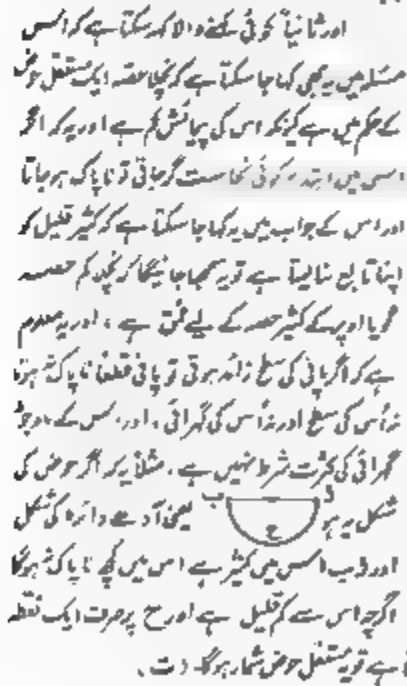 اور ثانیاً کوئی کہنے والا کہہ سکتا ہے کہ اس
مسئلہ میں یہ بھی کہا جا سکتا ہے کہ نچلا حصہ ایک مستقل حوض
کے حکم میں ہے کیونکہ اس کی پیمائش کم ہے اور یہ کہ اگر
اس میں ابتداءً کوئی نجاست گر جاتی تو ناپاک ہو جاتا
اور اس کے جواب میں یہ کہا جا سکتا ہے کہ کثیر قلیل کو
اپنا تابع بنا لیتا ہے تو یہ سمجھا جائیگا کہ نچلا کم حصہ
گویا اوپر کے کثیر حصہ کے لیے عمق ہے ، اور یہ معلوم
ہے کہ اگر پانی کی سطح زائد ہوتی تو پانی قطعاً ناپاک نہ ہوتا
نہ اُس کی سطح اور نہ اُس کی گہرائی ، اور اس کے باوجود
گہرائی کی کثرت شرط نہیں ہے ، مثلاً یہ کہ اگر حوض کی
شکل یہ ہو ء ب ح یعنی آدھے دائرہ کی شکل
اور ء ب اس میں کثیر ہے اس میں کچھ ناپاک نہ ہوگا
اگرچہ اس سے کم قلیل ہے اور ح پر صرف ایک نقطہ
ہے تو یہ مستقل حوض شمار ہوگا۔ ( ت ،